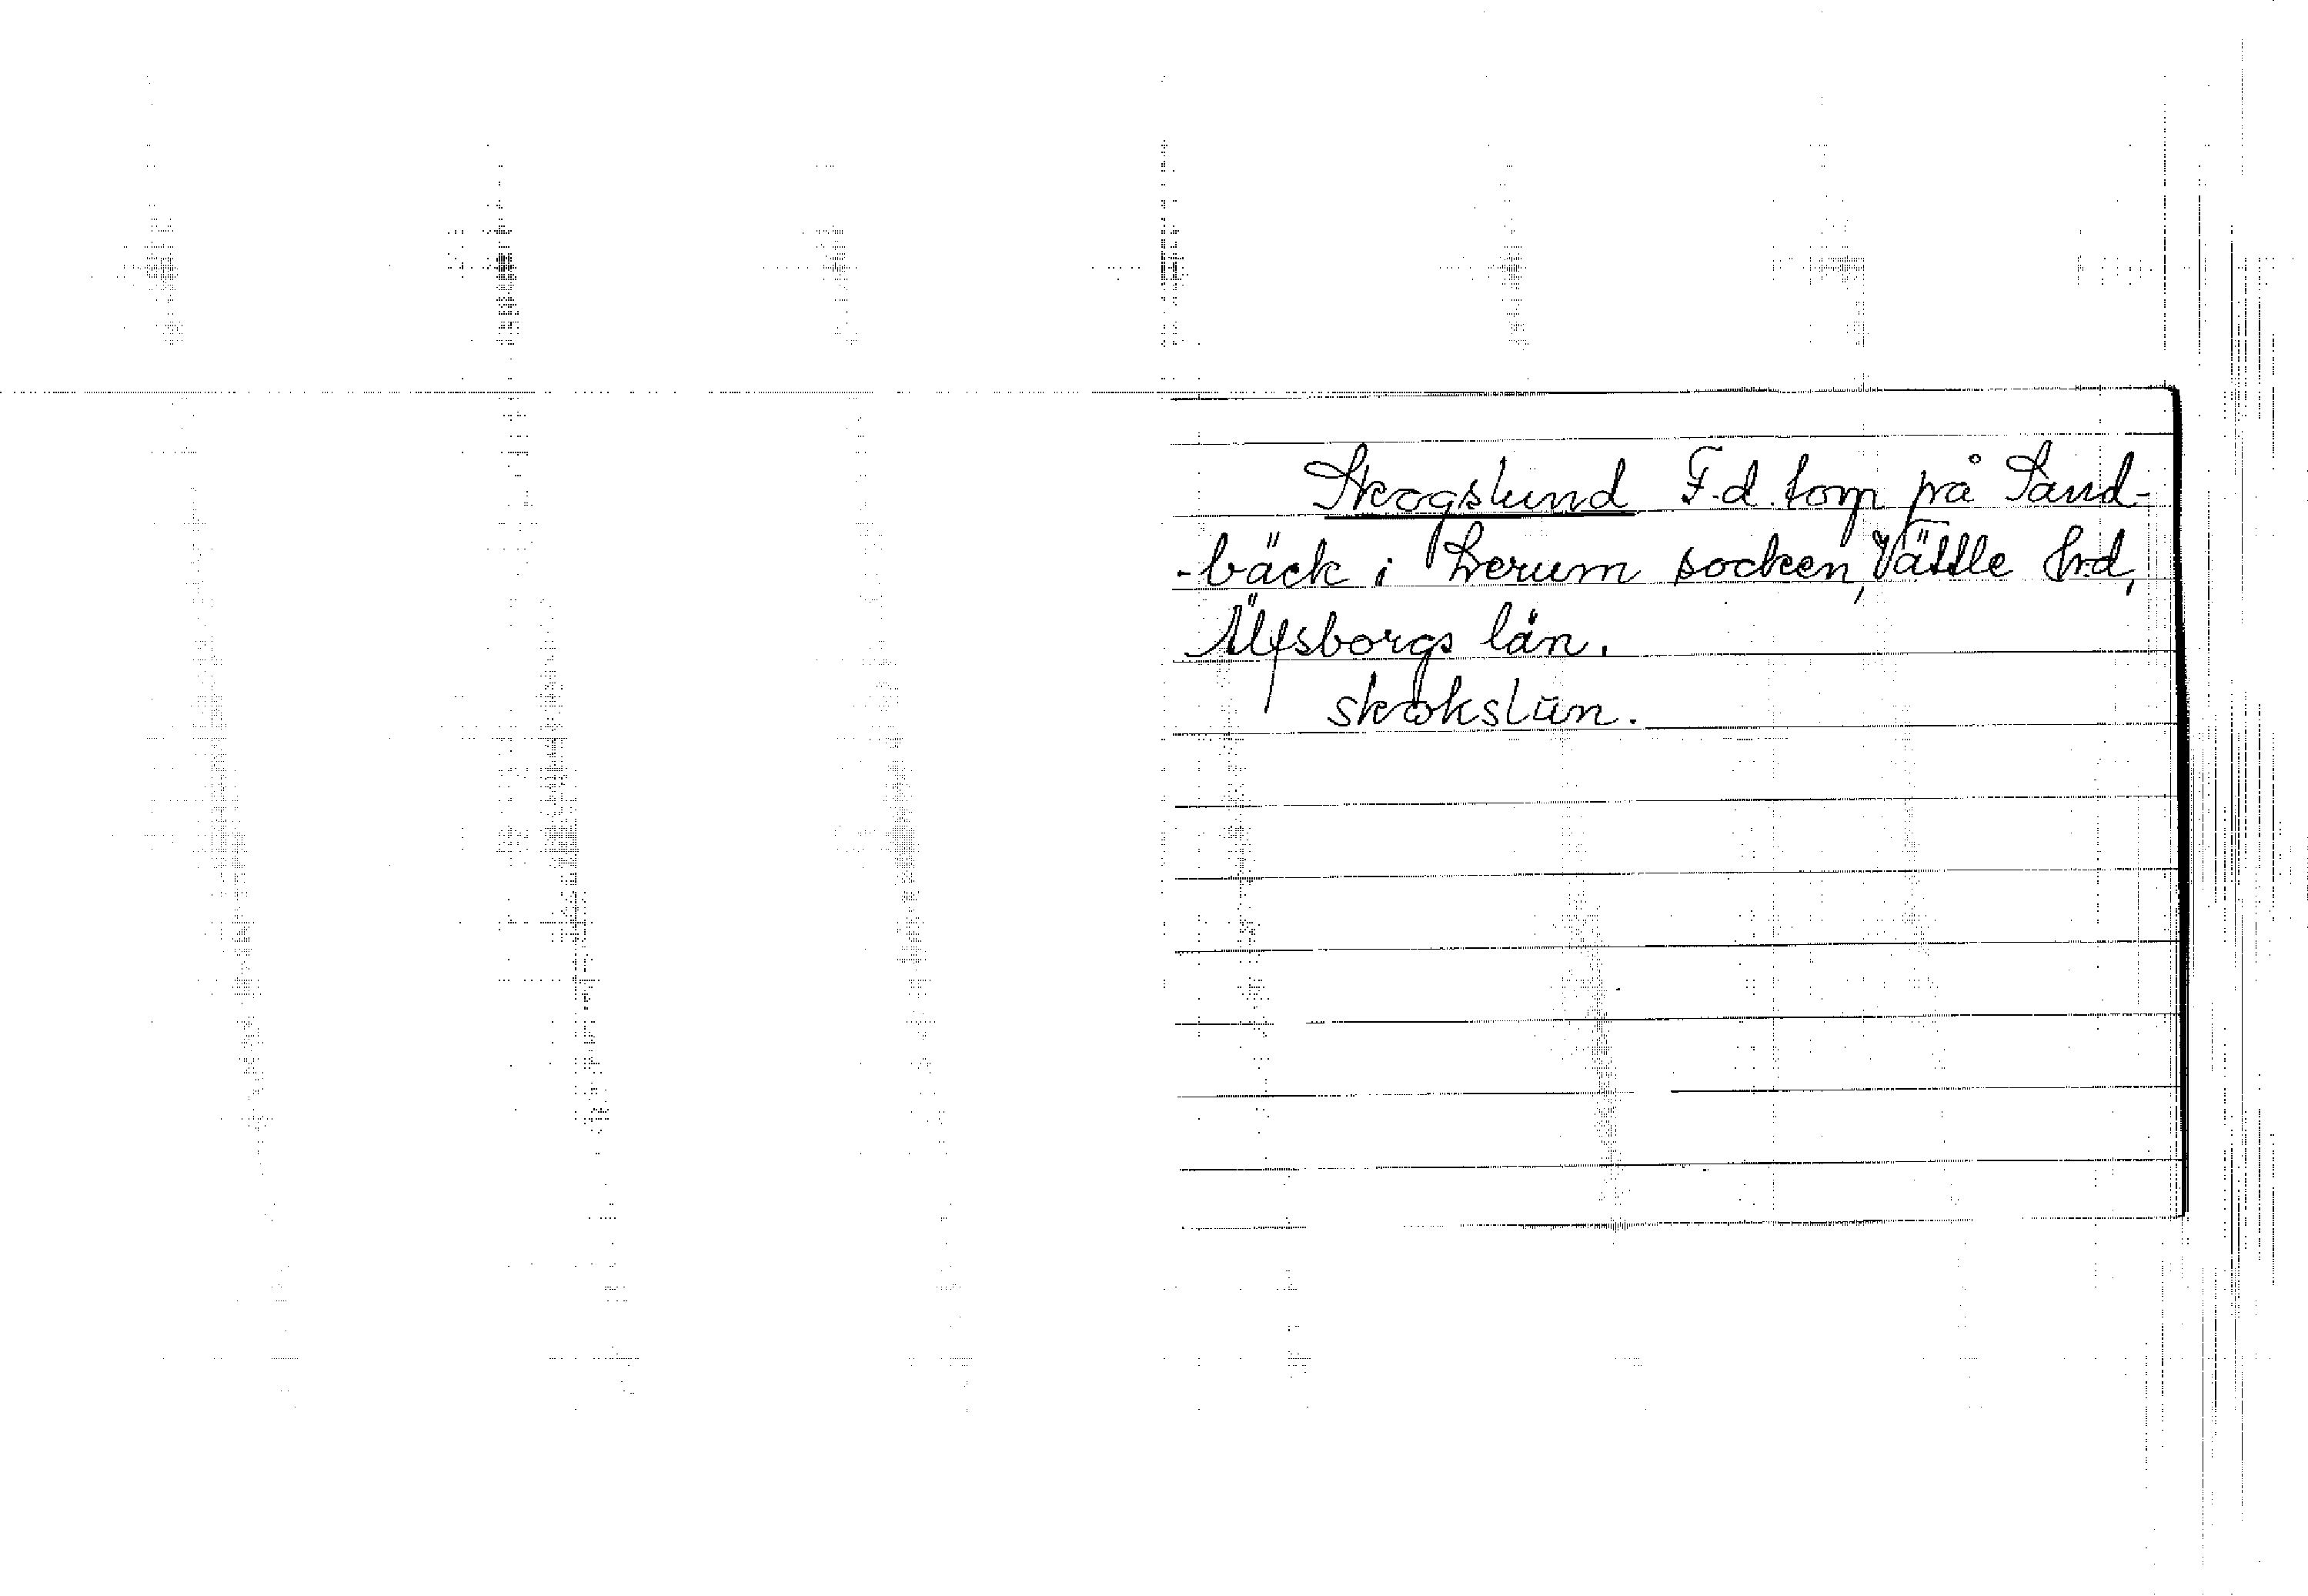 Skogslund F.d. torp på Sand-
-bäck i Lerum socken, Vättle hrd,
Älfsborgs län.
skωkslun.